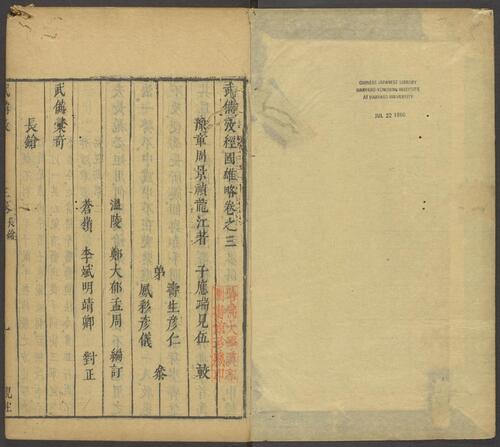 武備攷經國雄略卷之三
豫章周景禎龍江著 子應瑞見伍 較
壽生彦仁
弟 鳳彩彦儀 叅
溫陵 鄭大郁孟周 編訂
蒼嶺 李斌明靖卿 對正
武備彙奇
長鎗
長鎗
CHINESE-JAPANESE LIBRARY
HARVARD-YENCHING INSTITUTE
AT HARVARD UNIVERSITY
JUL 22 1960